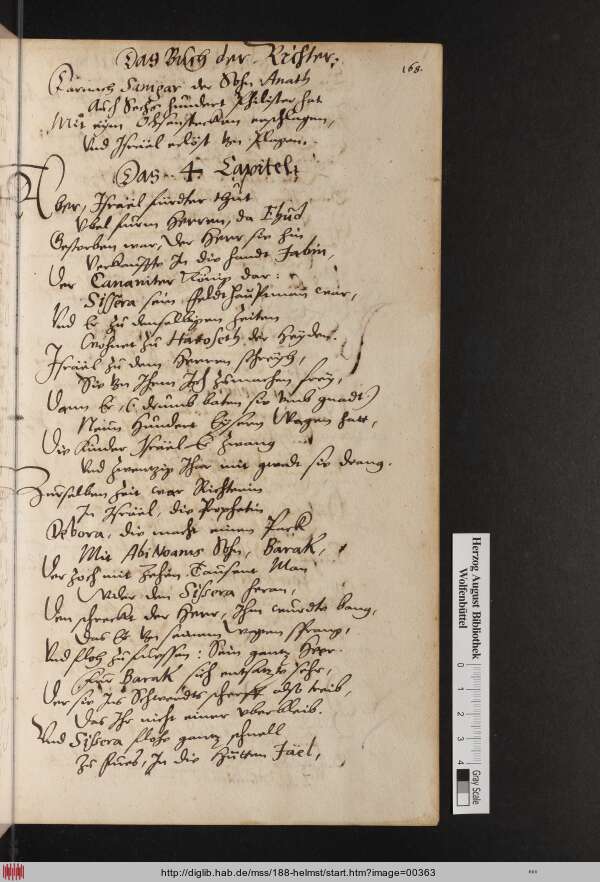 Das Buch der Richter.
168.
Darnach Samgar der Sohn Anath
Auch Sechs hundert Philister hat
Mit eim Ochsenstecken erschlagen,
Und Israel erlöst von Plagen.
Das 4. Capitel.
Aber, Israel fürdter thut
Vbel fürm Herren, da Ehud
Gestorben war, der Herr sie hin
Verkauffte In die handt Jabin,
Der Cananiter König dar:
Sissera sein feldt Hauptman war,
Und Er zu denselbigen Zeiten
Wohnet zu Haroseth der Heyden.
Israel zu dem Herren schreyh,
Sie von Ihrem Joch zumachen frey,
Dann Er, (drumb baten sie umb gnadt)
Neun Hundert Eysern Wagen hatt,
Die Kinder Israel Er zwang
Und zwentzig Jhar mit gewalt sie drang.
Zurselben Zeit war Richterin
In Israel, die Prophetin
Debora, die macht einen Pack
Mit AbiNoams Sohn, Barak,
Der zoch mit Zehen Tausent Man
Wider den Sissera heran,
Den schreckt der Herr, Ihm wurdte bang,
Das Er von seinem wagen sprang,
Und floh zu fuessen: Sein gantz Heer
Für Barak sich entsatzte sehr,
Der sie Ins Schwerdts scherff also treib,
Das Ihr nicht einer uberbleib.
Und Sissera flohe gantz schnell
Zu fues, In die Hütten Jael,
Herzog August Bibliothek
Wolfenbüttel
0 1 2 3 4
Gray Scale
http://diglib.hab.de/mss/188-helmst/start.htm?image=00363